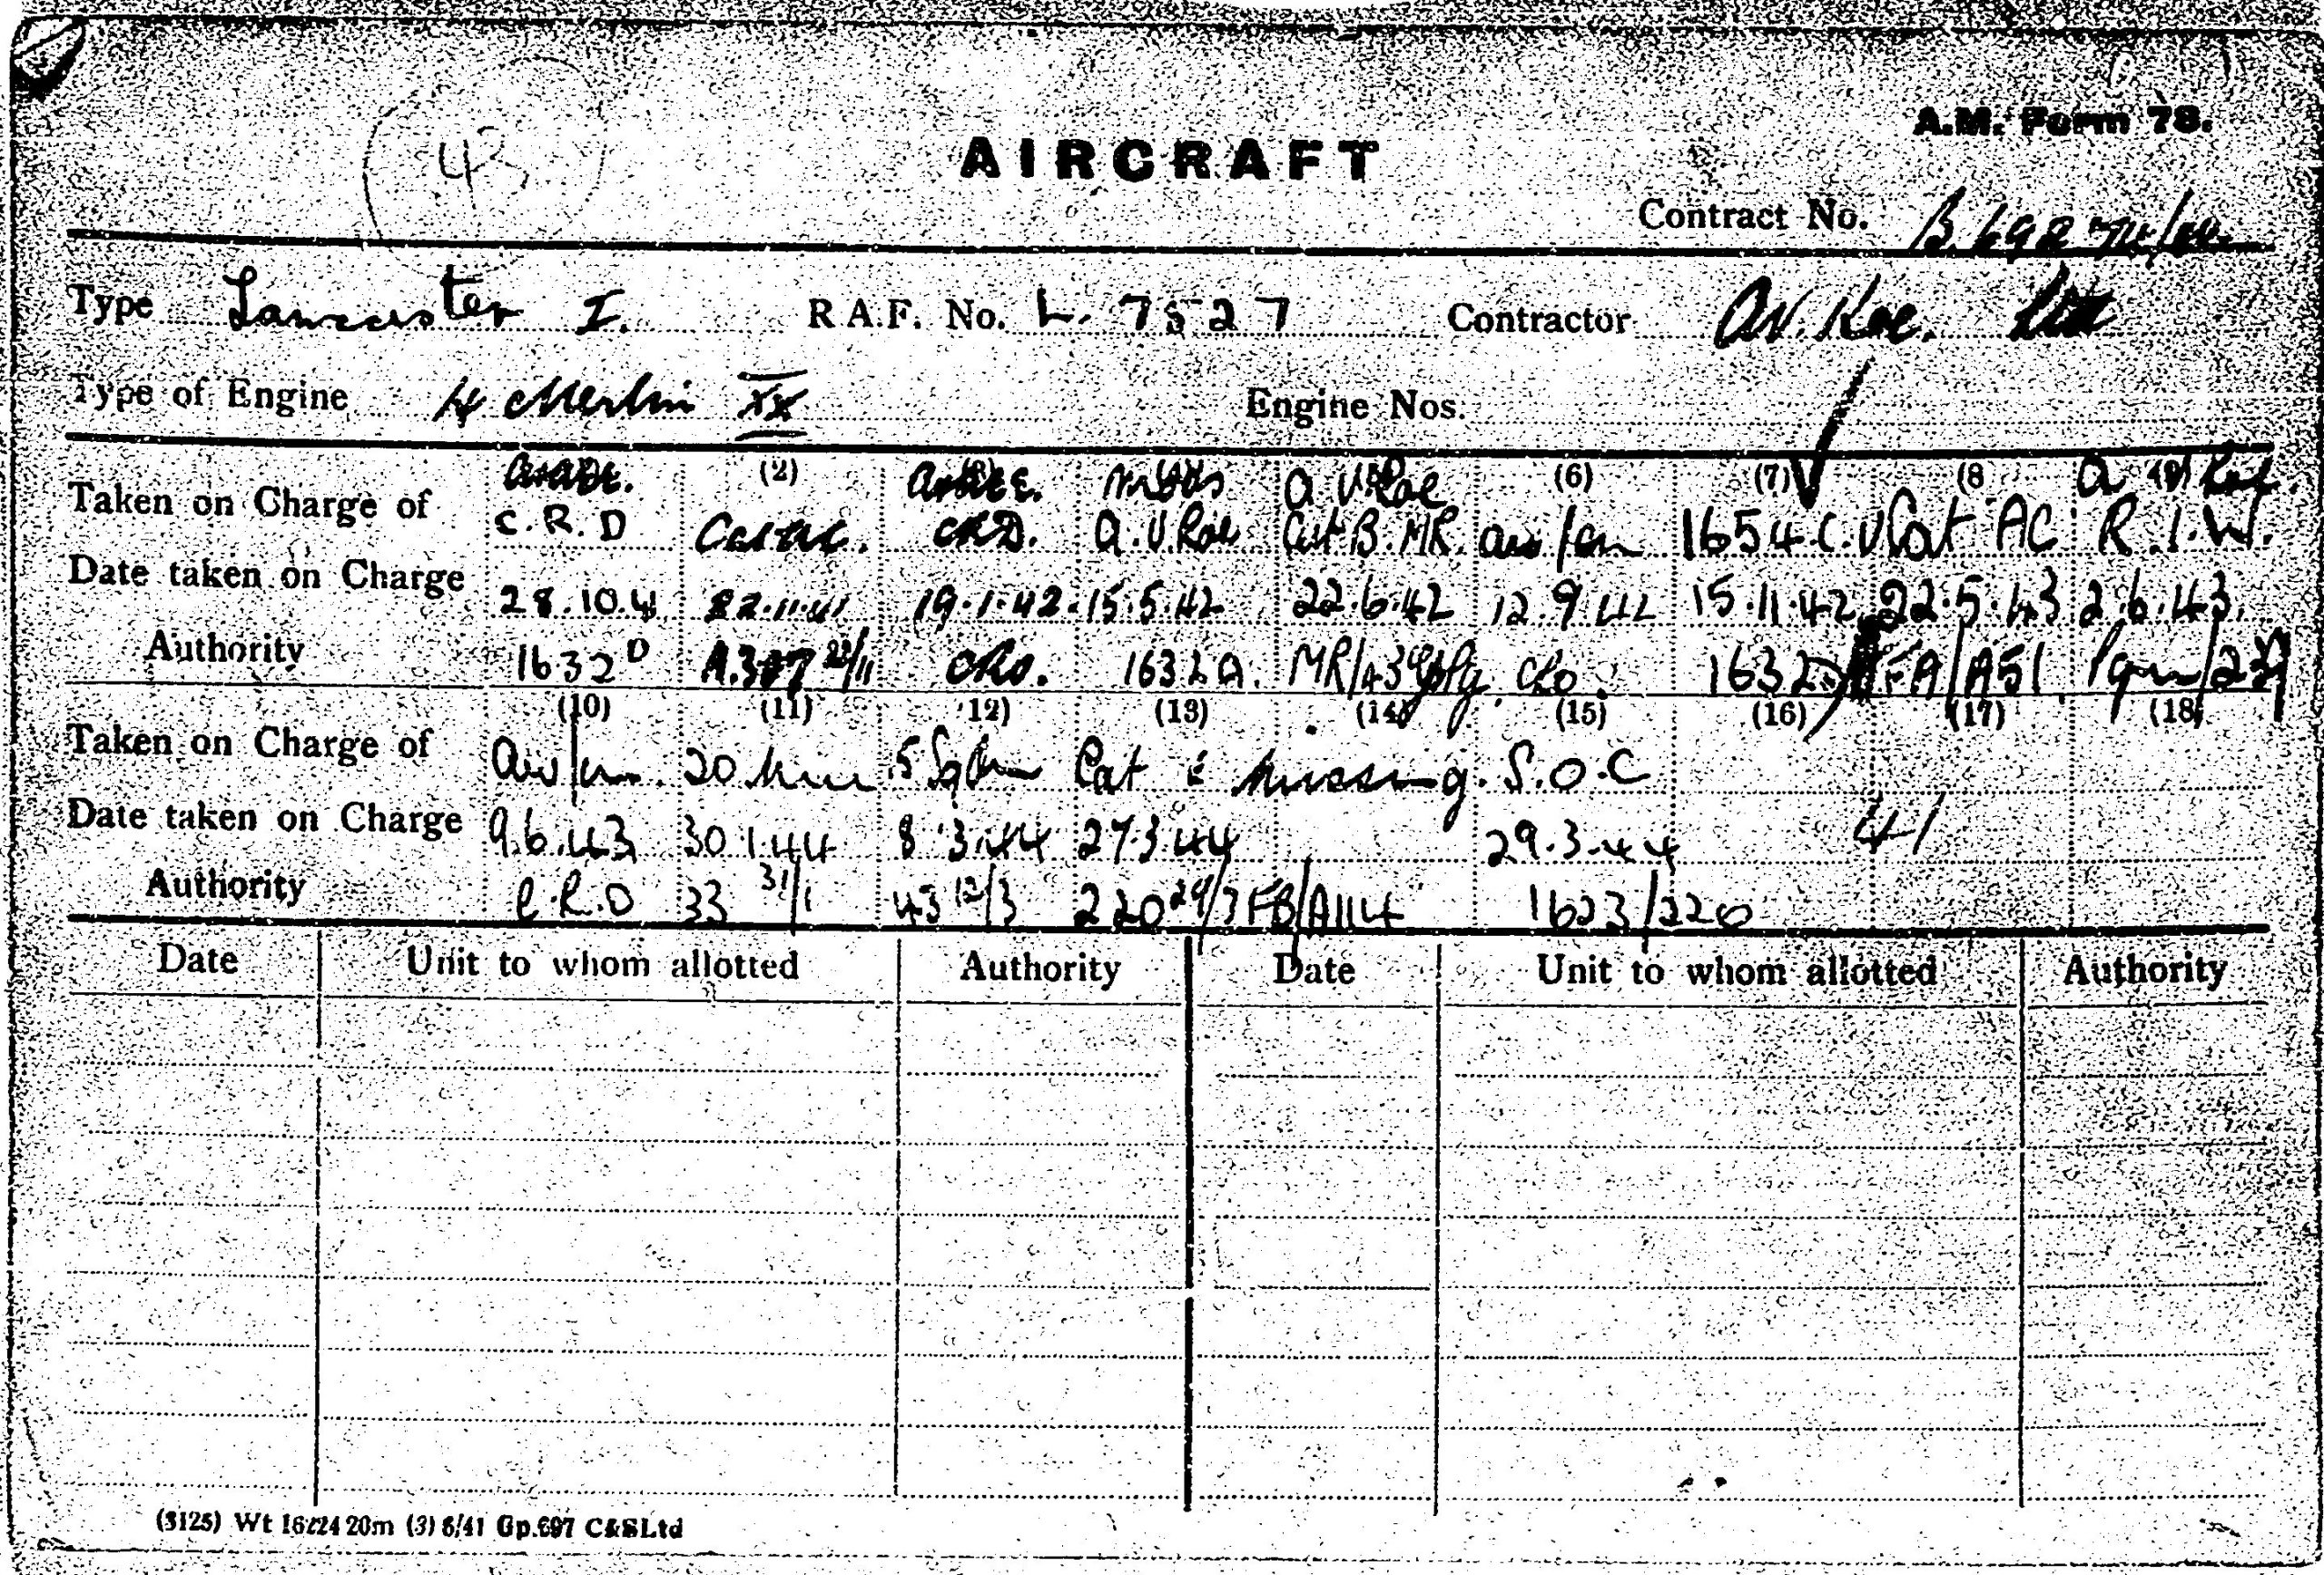 43
A.M. Form 78.
AIRCRAFT
Contract No. B.69274/40
Type Lancaster I. R.A.F. No. L. 7527 Contractor A.V. Roe. Ltd
Type of Engine 4 Merlin XX Engine Nos.
(2) (6) (7) (8 A V Roe.
Taken on Charge of C.R.D A&AEE. CRD. A.V. Roe A V Roe Cat B. MR. 1654 C.U Cat AC R.I.W.
Date taken on Charge 28.10.41 22.11.41 19.1.42. 15.5.42 22.6.42 12.9.42 15.11.42 22.5.43 2.6.43.
Authority 1632D A.307 23/11 CRO. 1632 A. CRO. 1632D FA/A51
(10) (11) 12) (13) (14) (15) (16) (17) (18)
Taken on Charge of 15 Sqdn Cat E Missing. S.O.C
Date taken on Charge 9.6.43 30 1.44 8 3.44 27.3.44 29.3.44 41
Authority C.R.D 33 31/1 43 12/3 220 29/3 FB/A114 1623/220
Date Unit to whom allotted Authority Date Unit to whom allotted Authority
(5125) Wt 16224 20m (3) 6/41 Gp.697 C&SLtd